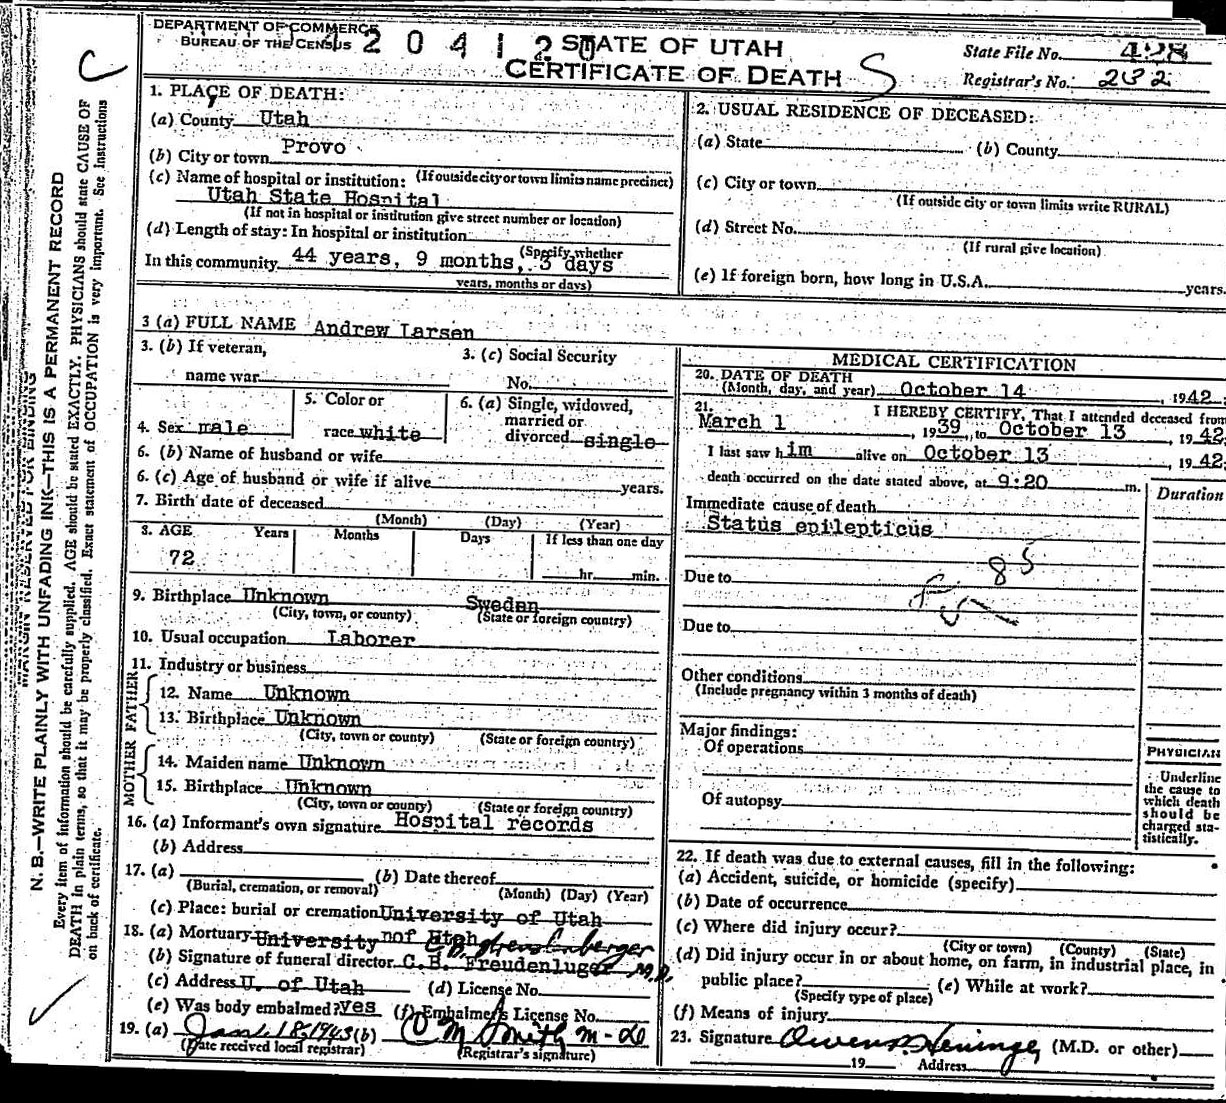 DEPARTMENT OF COMMERCE
BUREAU OF THE CENSUS
4 2 0 4 1 2 0
STATE OF UTAH
CERTIFICATE OF DEATH
S
C
State File No. 428
Registrar's No. 232
1. PLACE OF DEATH:
(a) County Utah
(b) City or town Provo
(If outside city or town limits name precinct)
(c) Name of hospital or institution:
Utah State Hospital
(If not in hospital or institution give street number or location)
(d) Length of stay: In hospital or institution
(Specify whether
In this community 44 years, 9 months, 3 days
years, months or days)
2. USUAL RESIDENCE OF DECEASED:
(a) State (b) County
(c) City or town
(If outside city or town limits write RURAL)
(d) Street No.
(If rural give location)
(e) If foreign born, how long in U.S.A. years.
3 (a) FULL NAME Andrew Larsen
3. (b) If veteran,
name war
3. (c) Social Security
No.
4. Sex male
5. Color or
race white
6. (a) Single, widowed,
married or
divorced single
6. (b) Name of husband or wife
6. (c) Age of husband or wife if alive years.
7. Birth date of deceased
(Month) (Day) (Year)
8. AGE Years Months Days If less than one day
72
hr. min.
9. Birthplace Unknown Sweden
(City, town, or county) (State or foreign country)
10. Usual occupation Laborer
11. Industry or business
FATHER
12. Name Unknown
13. Birthplace Unknown
(City, town or county) (State or foreign country)
MOTHER
14. Maiden name Unknown
15. Birthplace Unknown
(City, town or county) (State or foreign country)
16. (a) Informant's own signature Hospital records
(b) Address
17. (a) (b) Date thereof
(Burial, cremation, or removal) (Month) (Day) (Year)
(c) Place: burial or cremation University of Utah
18. (a) Mortuary University of Utah
(b) Signature of funeral director C. B. Freudenluger M.D.
(c) Address U. of Utah (d) License No.
(e) Was body embalmed? yes (f) Embalmer's License No.
19. (a) Jan 18-1943 (b) O M Smith M-D
(Date received local registrar) (Registrar's signature)
MEDICAL CERTIFICATION
20. DATE OF DEATH
(Month, day, and year) October 14, 1942
21. I HEREBY CERTIFY, That I attended deceased from
March 1, 1939, to October 13, 1942
I last saw him alive on October 13, 1942
death occurred on the date stated above, at 9:20 m.
Duration
Immediate cause of death
Status epilepticus
85
Due to
Due to
Other conditions
(Include pregnancy within 3 months of death)
Major findings:
Of operations
Of autopsy
PHYSICIAN
Underline
the cause to
which death
should be
charged sta-
tistically.
22. If death was due to external causes, fill in the following:
(a) Accident, suicide, or homicide (specify)
(b) Date of occurrence
(c) Where did injury occur?
(City or town) (County) (State)
(d) Did injury occur in or about home, on farm, in industrial place, in
public place? (e) While at work?
(Specify type of place)
(f) Means of injury
23. Signature (M.D. or other)
19 Address
MARGIN RESERVED FOR BINDING
N. B.—WRITE PLAINLY WITH UNFADING INK—THIS IS A PERMANENT RECORD
Every item of information should be carefully supplied. AGE should be stated EXACTLY. PHYSICIANS should state CAUSE OF
DEATH in plain terms, so that it may be properly classified. Exact statement of OCCUPATION is very important. See Instructions
on back of certificate.